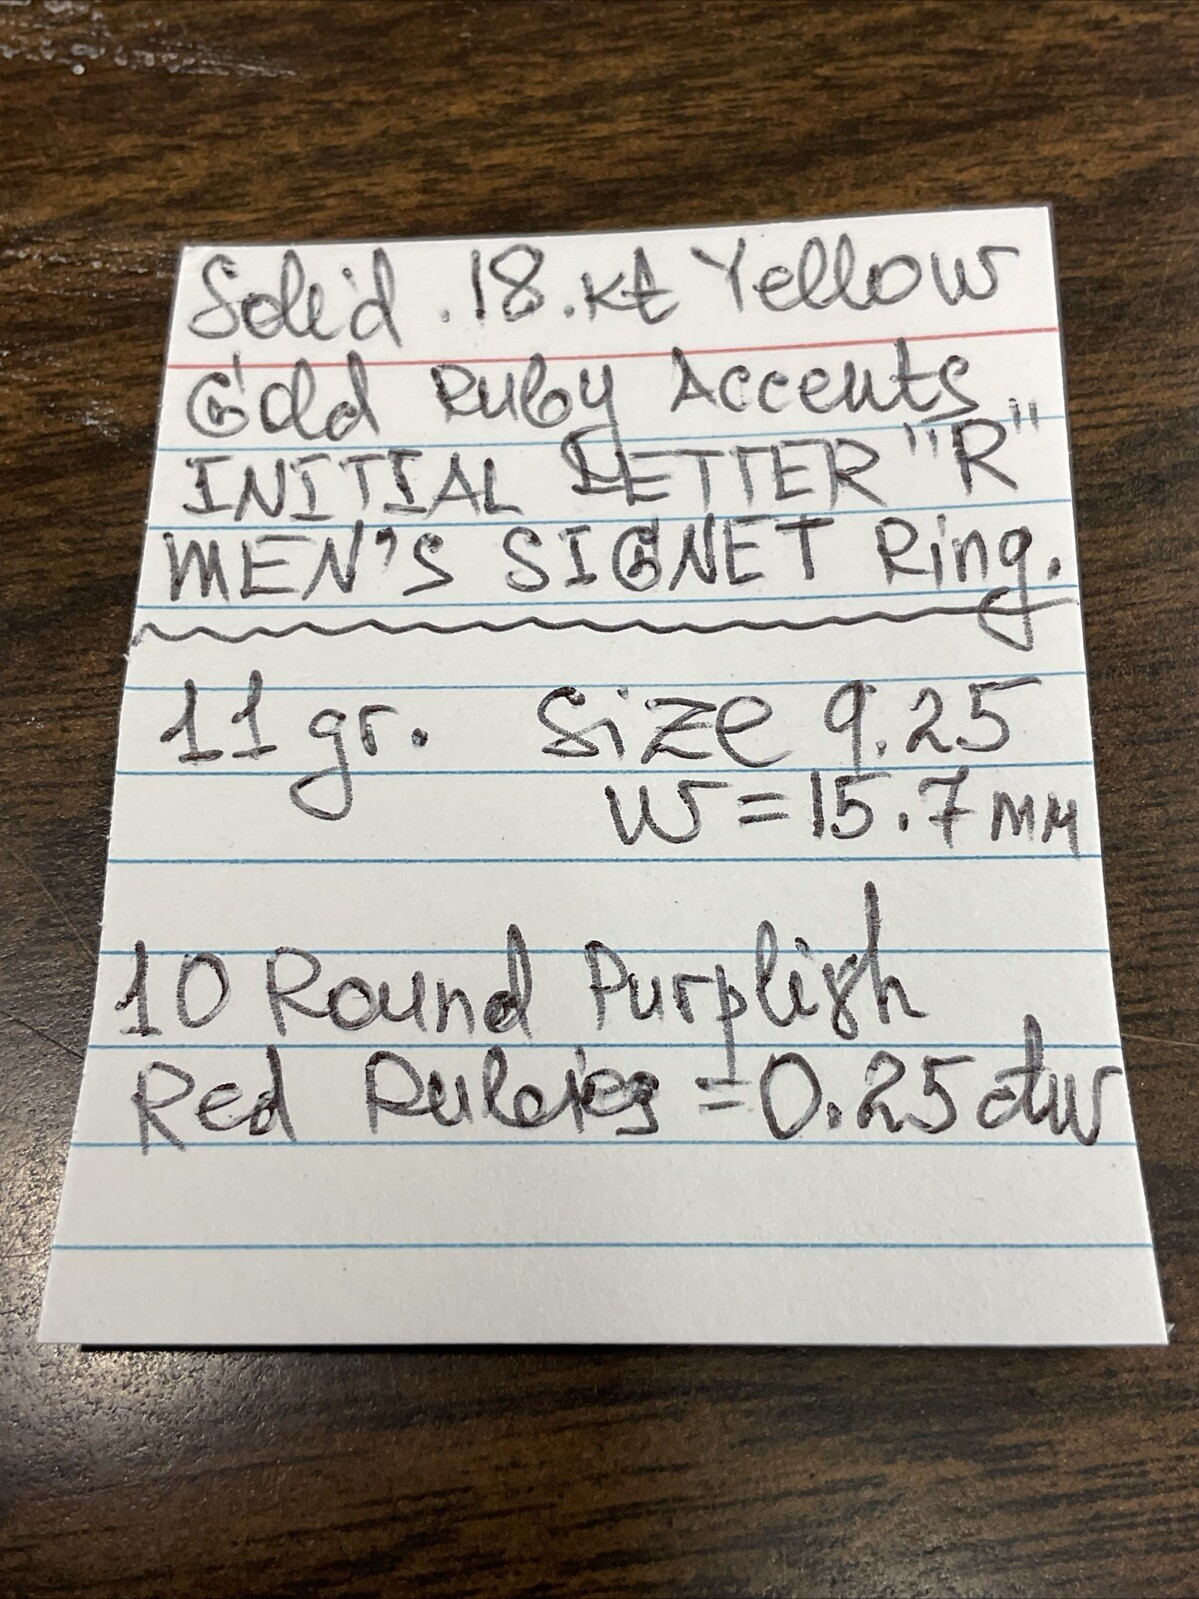 Solid .18.kt Yellow
Gold Ruby Accents
INITIAL LETTER "R"
MEN'S SIGNET Ring.
11 gr. Size 9.25
W=15.7мм
10 Round Purplish
Red Rubies =0.25ctw